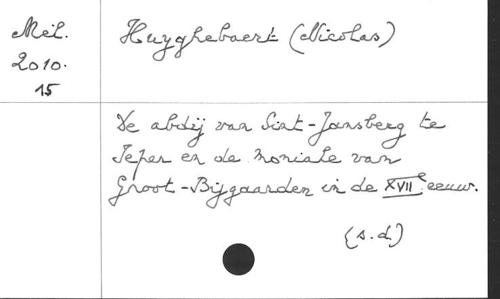 Mél.
2010.
15
Huyghebaert (Nicolas)
De abdij van Sint-Jansberg te
Ieper en de moniale van
Groot-Bijgaarden in de XVIIe eeuw.
(s.d.)